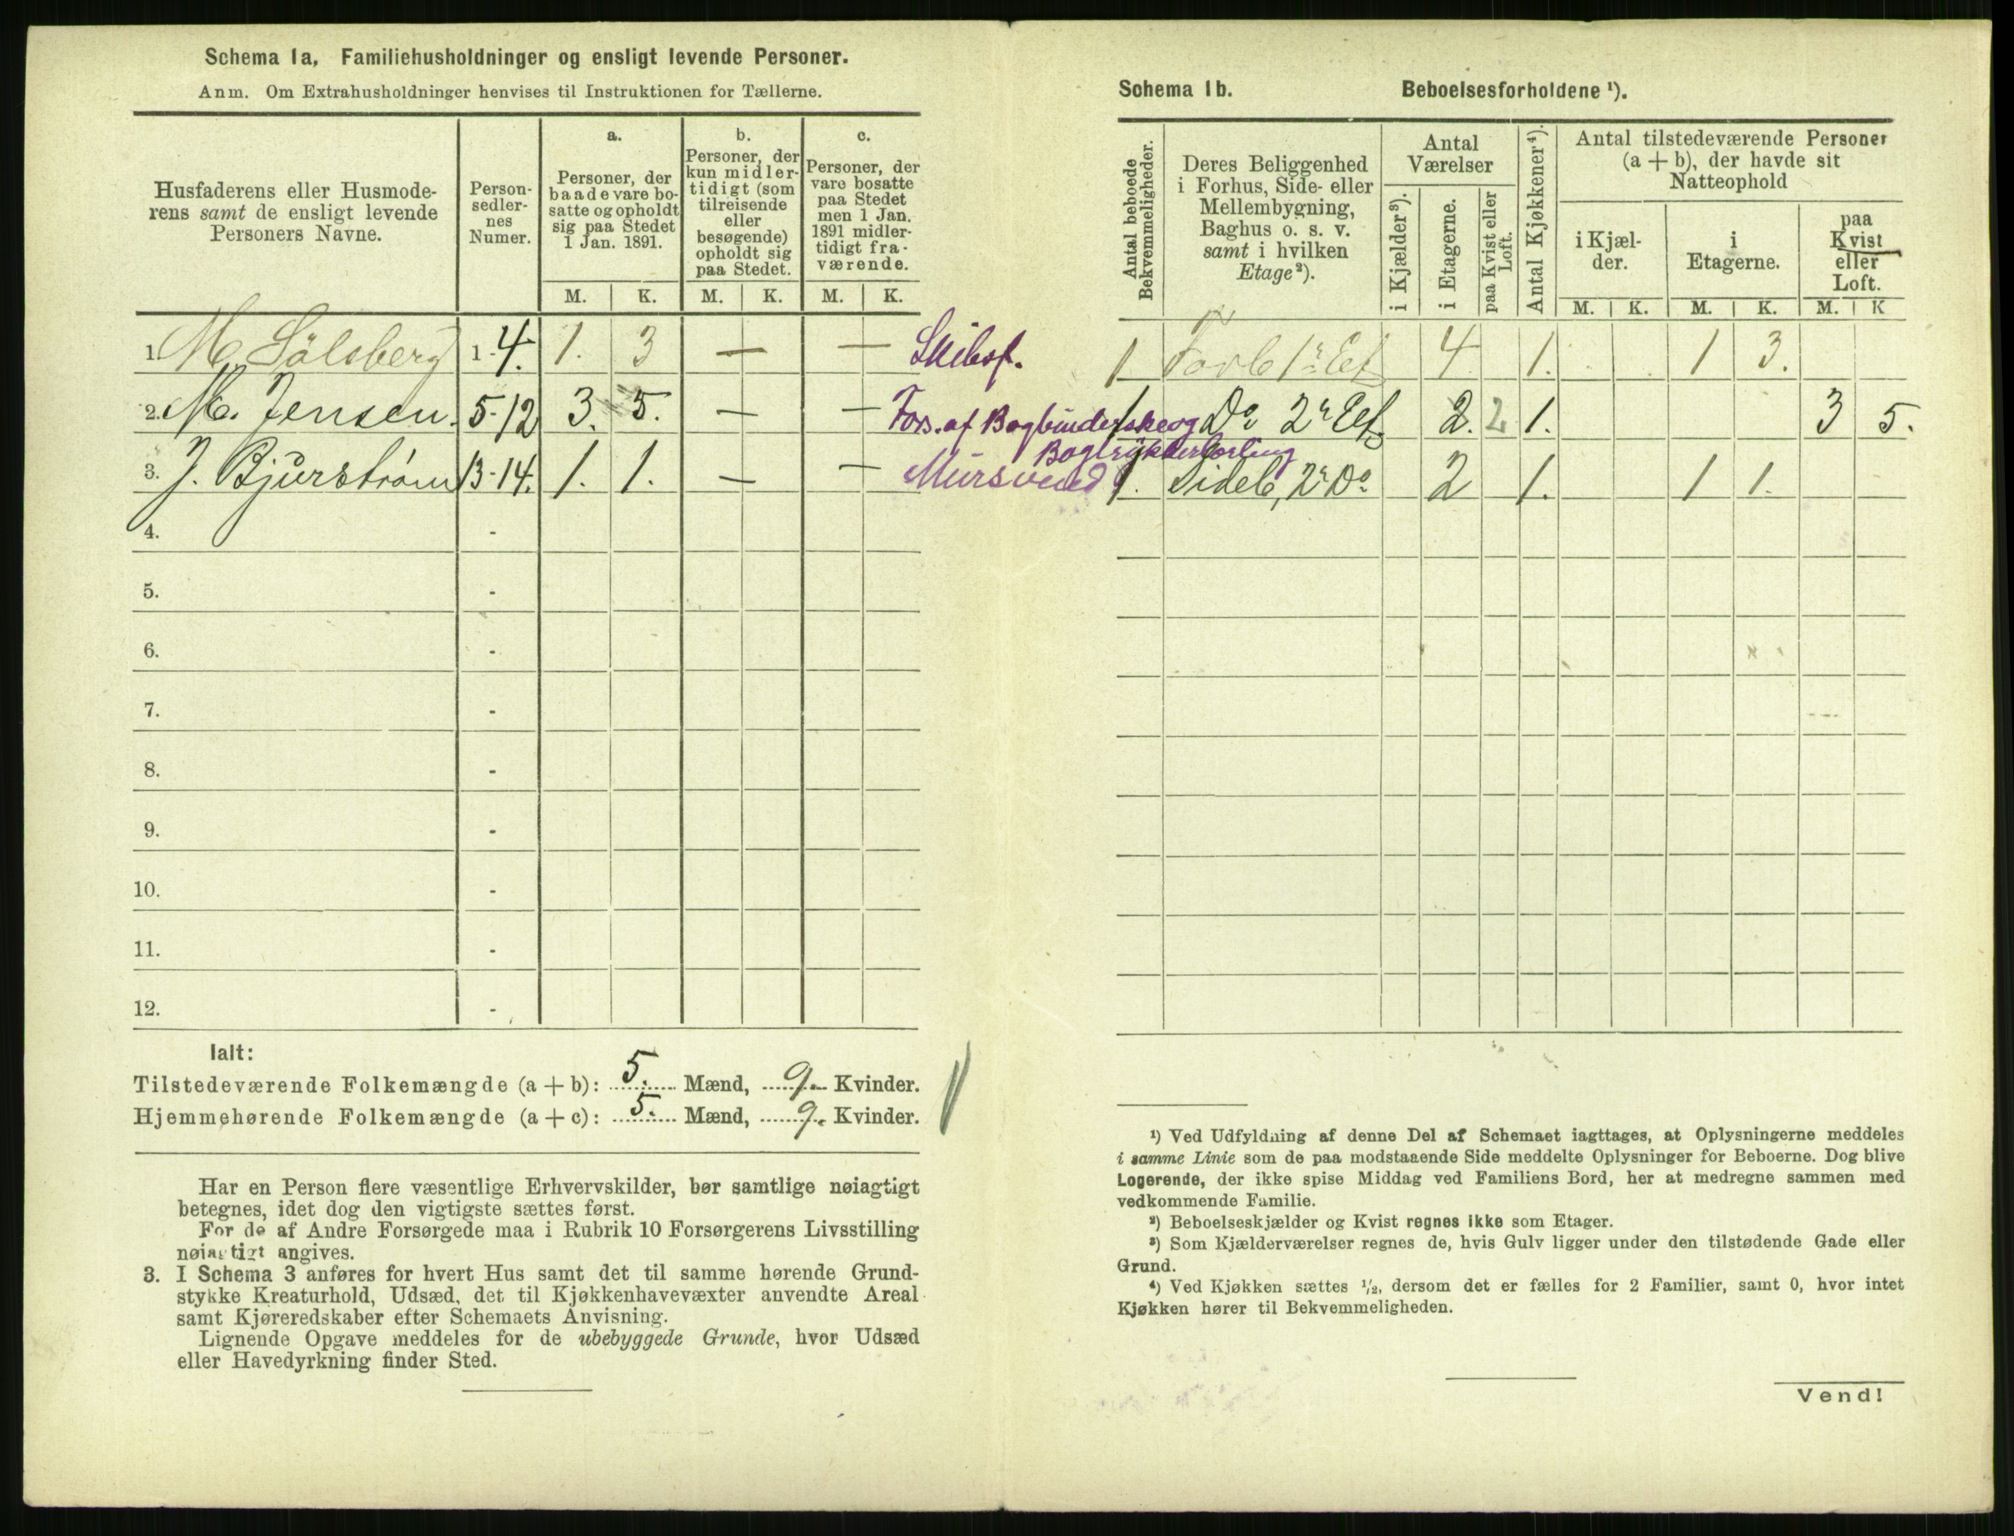 Schema 1a. Familiehusholdninger og ensligt levende Personer.
Anm. Om Extrahusholdninger henvises til Instruktionen for Tællerne.
Husfaderens eller Husmode-
rens samt de ensligt levende
Personers Navne.
Person-
sedler-
nes
Numer.
a.
Personer, der
baade vare bo-
satte og opholdt
sig paa Stedet
1 Jan. 1891.
b.
Personer, der
kun midler-
tidigt (som
tilreisende
eller
besøgende)
opholdt sig
paa Stedet.
c.
Personer, der
vare bosatte
paa Stedet
men 1 Jan.
1891 midler-
tidigt fra-
værende.
M. K. M. K. M. K.
1. M. Sölsberg 1-4. 1. 3 — — Skibsf.
2. M. Jensen. 5-12 3. 5. — — Fors. af Bogbinderske og
Bogtrykkerlærling
3. J. Bjurström 13-14. 1. 1. — — Mursvend
4. -
5. -
6. -
7. -
8. -
9. -
10. -
11. -
12. -
Ialt:
Tilstedeværende Folkemængde (a + b): 5. Mænd, 9. Kvinder.
Hjemmehørende Folkemængde (a + c): 5. Mænd, 9. Kvinder.
Har en Person flere væsentlige Erhvervskilder, bør samtlige nøiagtigt
betegnes, idet dog den vigtigste sættes først.
For de af Andre Forsørgede maa i Rubrik 10 Forsørgerens Livsstilling
nøiagtigt angives.
3. I Schema 3 anføres for hvert Hus samt det til samme hørende Grund-
stykke Kreaturhold, Udsæd, det til Kjøkkenhavevæxter anvendte Areal
samt Kjøreredskaber efter Schemaets Anvisning.
Lignende Opgave meddeles for de ubebyggede Grunde, hvor Udsæd
eller Havedyrkning finder Sted.
Schema 1b. Beboelsesforholdene ¹).
Antal beboede
Bekvemmeligheder.
Deres Beliggenhed
i Forhus, Side- eller
Mellembygning,
Baghus o. s. v.
samt i hvilken
Etage ²).
Antal
Værelser
i Kjælder ³).
i Etagerne.
paa Kvist eller
Loft.
Antal Kjøkkener ⁴).
Antal tilstedeværende Personer
(a + b), der havde sit
Natteophold
i Kjæl-
der.
i
Etagerne.
paa
Kvist
eller
Loft.
M. K. M. K. M. K
1 Forb 1ᵉ Et 4 1. 1 3.
1 Do 2ᵉ Et 2. 2 1. 3 5.
1. Sideb, 2ᵉ Do 2 1. 1 1.
¹) Ved Udfyldning af denne Del af Schemaet iagttages, at Oplysningerne meddeles
i samme Linie som de paa modstaaende Side meddelte Oplysninger for Beboerne. Dog blive
Logerende, der ikke spise Middag ved Familiens Bord, her at medregne sammen med
vedkommende Familie.
²) Beboelseskjælder og Kvist regnes ikke som Etager.
³) Som Kjælderværelser regnes de, hvis Gulv ligger under den tilstødende Gade eller
Grund.
⁴) Ved Kjøkken sættes ¹/₂, dersom det er fælles for 2 Familier, samt 0, hvor intet
Kjøkken hører til Bekvemmeligheden.
Vend!